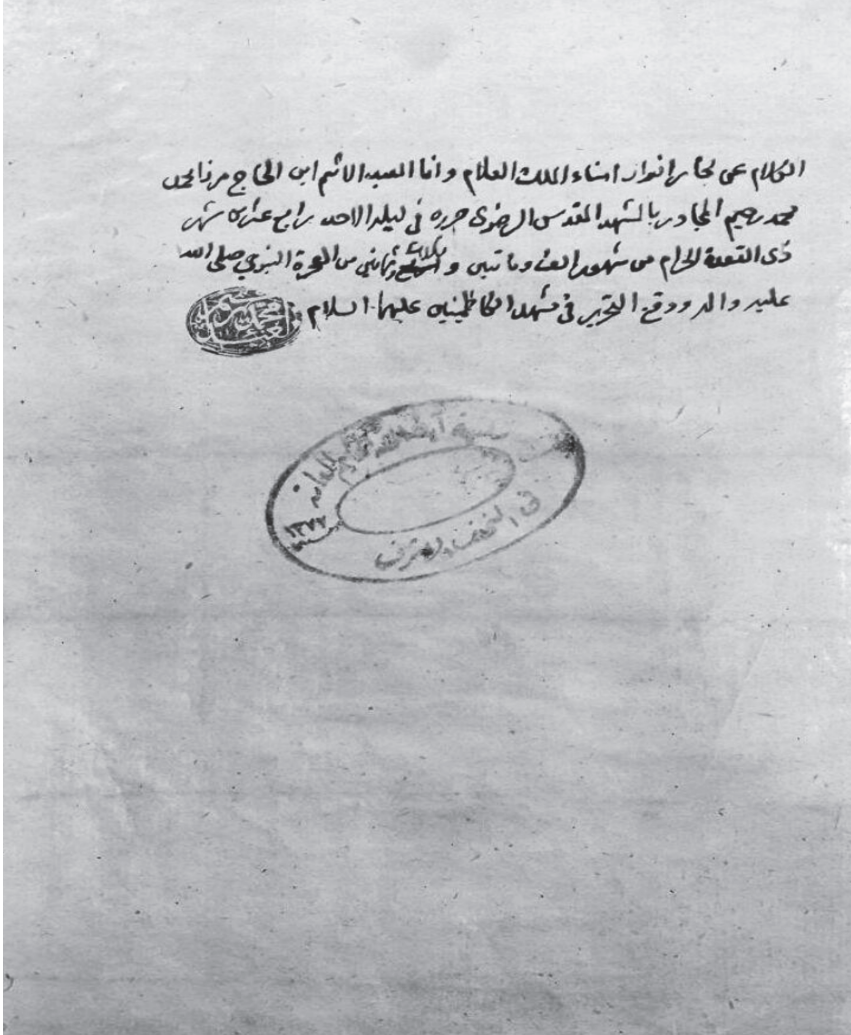 الكلام عن بحار انوار امناء الملك العلام وانا العبد الاثم ابن الحاج مرزا محمد
محمد رحيم المجاور بالمشهد المقدس الرضوى حرره فى ليلة الاحد رابع عشر شهر
ذى القعدة الحرام من شهور الف وماتين و ثلاث وثمانين من الهجرة النبوى صلى الله
عليه واله ووقع التحرير فى مشهد الكاظمين عليهما السلام
محمد رحيم
فى النجف الاشرف
١٣٧٧